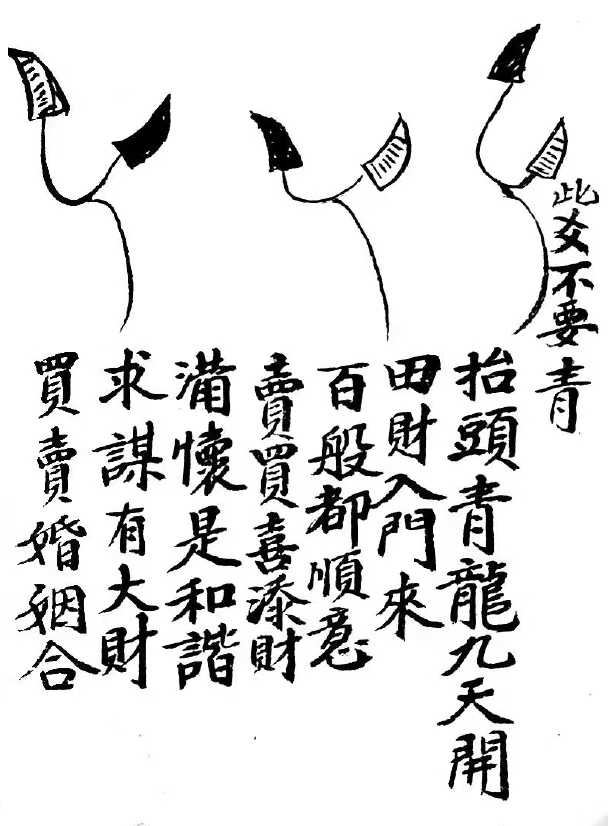 此爻不要青
抬頭青龍九天開
田財入門來
百般都順意
賣買喜添財
滿懷是和諧
求謀有大財
買賣婚姻合